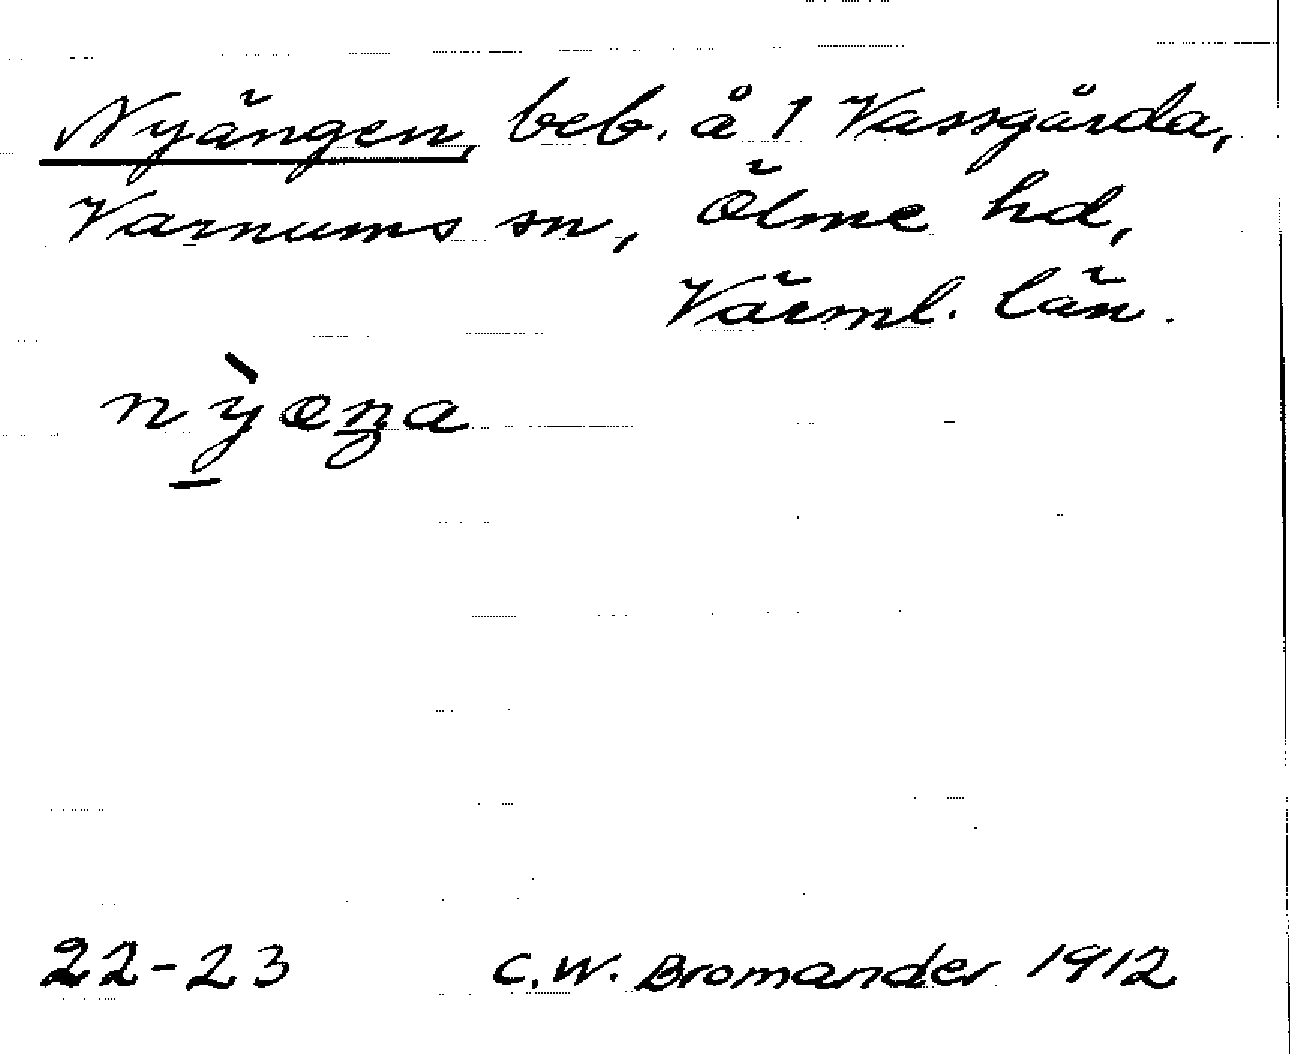 Nyängen, beb. å 1 Vassgårda,
Varnums sn, Ölme hd,
Värml. län.
nỳ̠æŋa
22-23 C.W. Bromander 1912